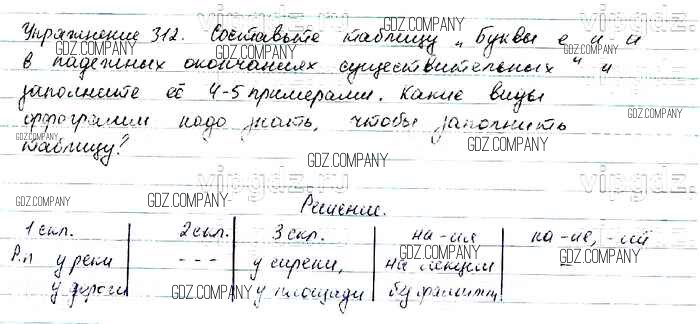 Упражнение 312. Составьте таблицу „Буквы е и - и
в падежных окончаниях существительных" и
заполните её 4-5 примерами. Какие виды
орфограмм надо знать, чтобы заполнить
таблицу?
Решение.
1 скл. 2 скл. 3 скл. на -ия на -ие, -ий
Р.п у реки - - - у сирени, –
у дороги у площади
GDZ.COMPANY
vipgdz.ru